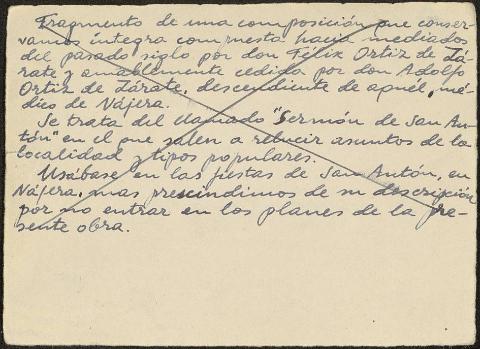 Fragmento de una composición que conser-
vamos íntegra compuesta hacia mediados
del pasado siglo por don Félix Ortiz de Zá-
rate y amablemente cedida por don Adolfo
Ortiz de Zárate, descendiente de aquél, mé-
dico de Nájera.
Se trata del llamado "Sermón de San An-
tón" en el que salen a relucir asuntos de la
localidad y tipos populares.
Usábase en las fiestas de San Antón, en
Nájera, mas prescindimos de su descripción
por no entrar en los planes de la pre-
sente obra.